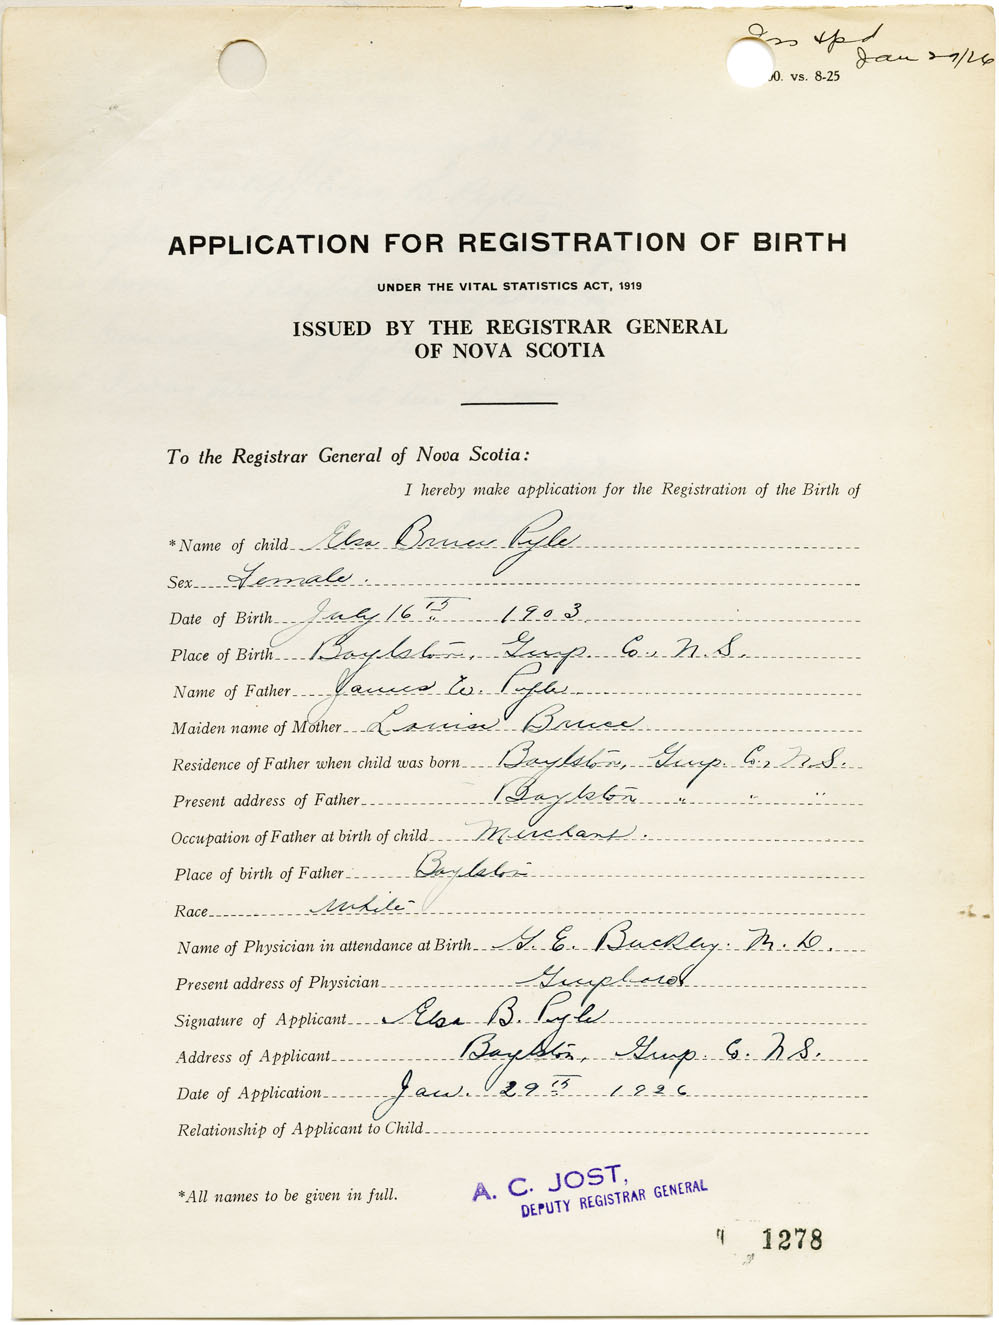 Jan 29/26
00. vs. 8-25
APPLICATION FOR REGISTRATION OF BIRTH
UNDER THE VITAL STATISTICS ACT, 1919
ISSUED BY THE REGISTRAR GENERAL
OF NOVA SCOTIA
To the Registrar General of Nova Scotia:
I hereby make application for the Registration of the Birth of
*Name of child Elsa Bruce Pyle
Sex Female.
Date of Birth July 16th 1903
Place of Birth Boylston, Guys. Co., N.S.
Name of Father James W. Pyle
Maiden name of Mother Louise Bruce
Residence of Father when child was born Boylston, Guys. Co., N.S.
Present address of Father Boylston " " "
Occupation of Father at birth of child Merchant.
Place of birth of Father Boylston
Race White
Name of Physician in attendance at Birth G. E. Buckley. M. D.
Present address of Physician Guysboro
Signature of Applicant Elsa B. Pyle
Address of Applicant Boylston, Guys. Co. N.S.
Date of Application Jan. 29th 1926
Relationship of Applicant to Child
*All names to be given in full.
A. C. JOST,
DEPUTY REGISTRAR GENERAL
1278